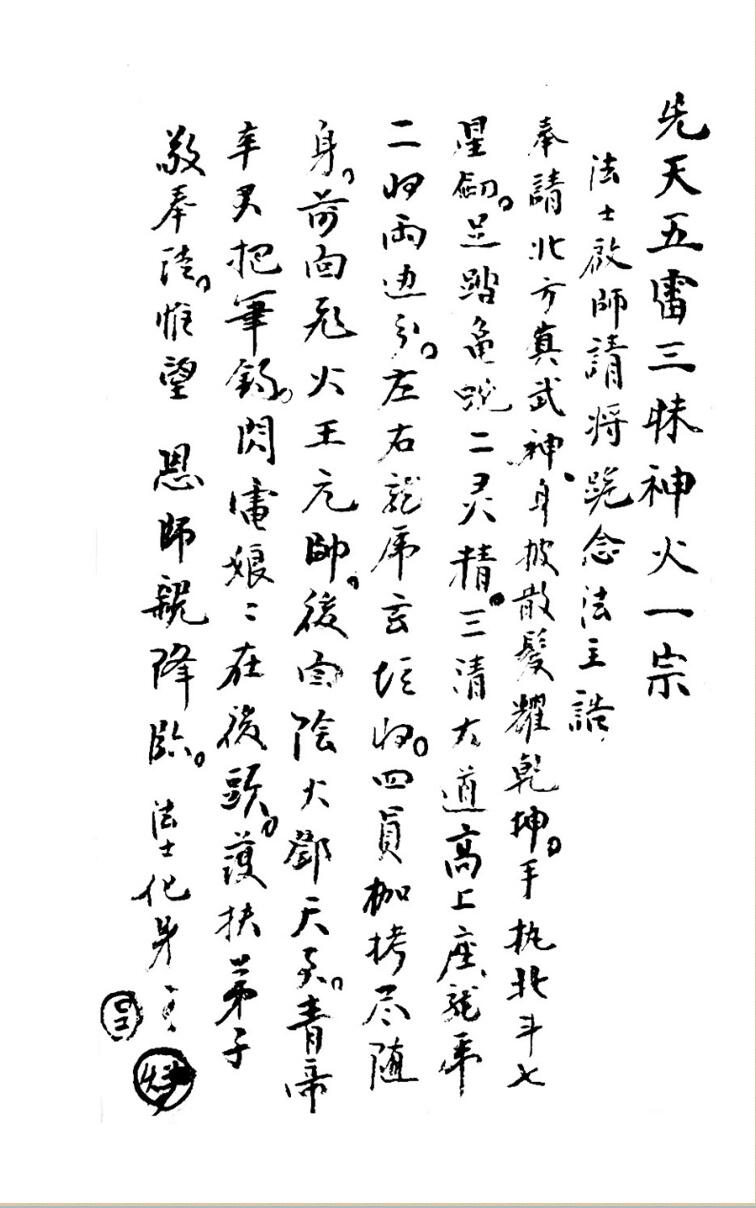 先天五雷三昧神火一宗
法士啟師請将跪念法主誥
奉請北方真武神、身披散髮耀乾坤。手执北斗七
星劒。足踏龟蛇二灵精。三清大道高上座、龍虎
二将两边分。左右龍虎玄坛将。四員枷拷尽随
身。前面飛火王元帥。後面陰火鄧天君。青帝
辛君把筆錄。閃電娘〻在後頭。護扶弟子
敬奉陸。惟望 恩師親降臨。法士化身